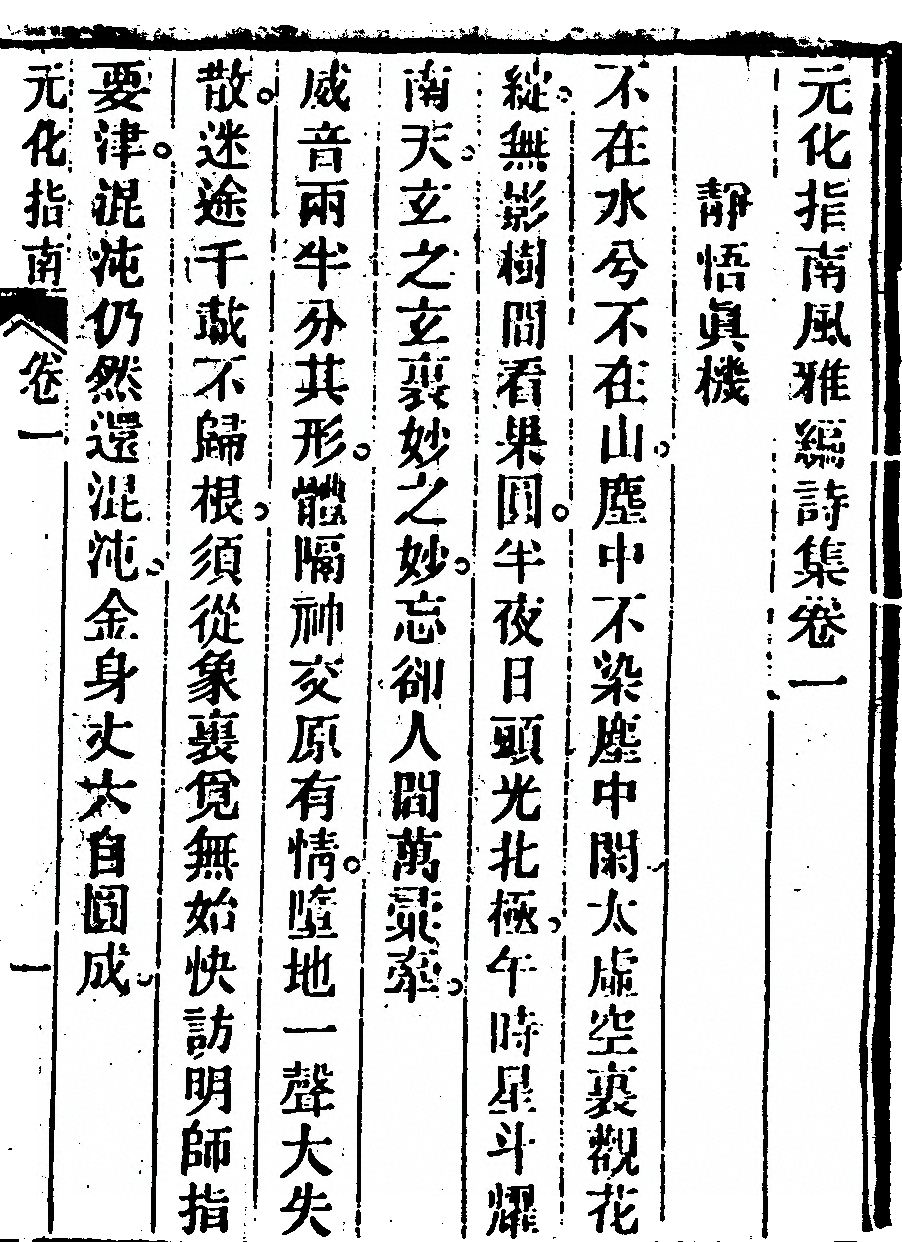 元化指南風雅編詩集卷一
靜悟眞機
不在水兮不在山。塵中不染塵中閑。太虛空裏觀花
綻。無影樹間看果圓。半夜日頭光北極。午時星斗耀
南天。玄之玄裏妙之妙。忘卻人間萬彙牽。
威音兩半分其形。體隔神交原有情。墮地一聲大失
散。迷途千載不歸根。須從象裏覓無始快訪明師指
要津。混沌仍然還混沌。金身丈六自圓成。
元化指南 卷一 一